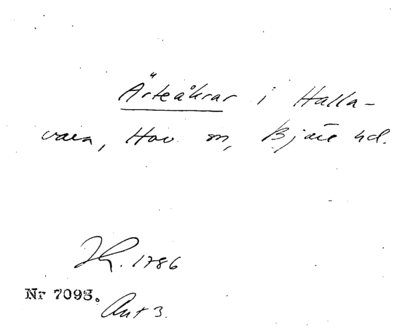 Ärteåkrar i Halla-
vara, Hov sn, Bjäre hd.
Jh. 1786
Nr 7093.
Ant 3.